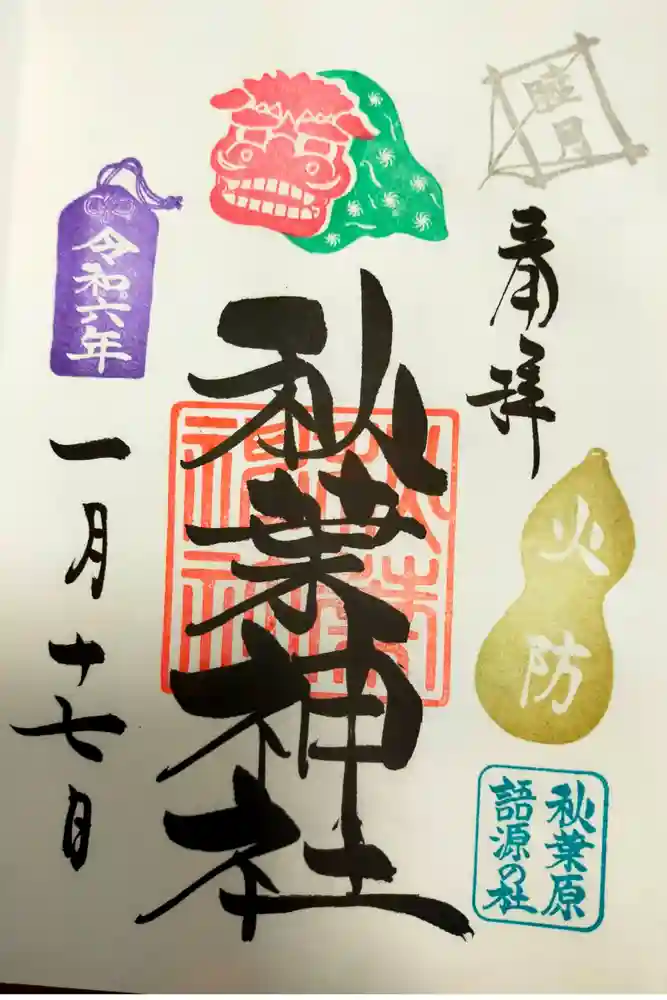 睦月
奉拝
火防
秋葉原
語源の社
秋葉神社
秋葉
神社
令和六年
一月十七日